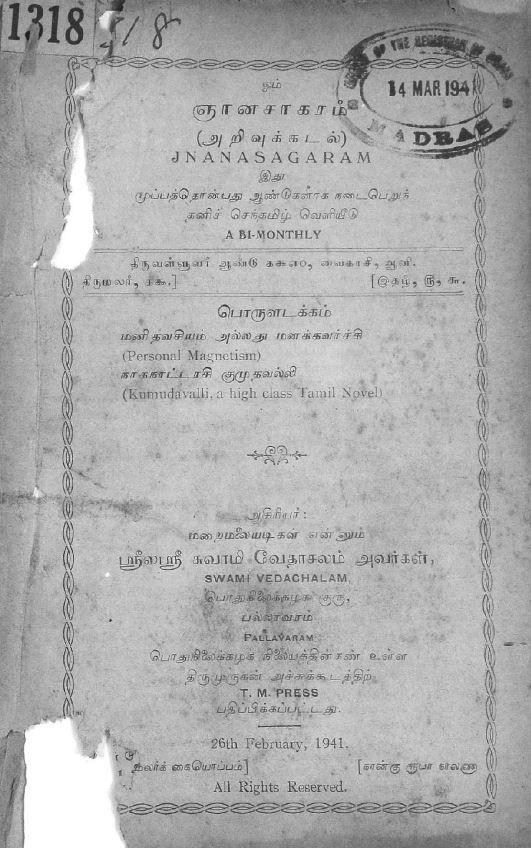 1318
518
OFFICE OF THE REGISTRAR OF BOOKS
14 MAR 1941
MADRAS
ஓம்
ஞானசாகரம்
(அறிவுக்கடல்)
JNANASAGARAM
இது
முப்பத்தொன்பது ஆண்டுகளாக நடைபெறுந்
தனிச் செந்தமிழ் வெளியீடு
A BI-MONTHLY
திருவள்ளுவர் ஆண்டு ௧௯௭௦, வைகாசி, ஆனி.
திருமலர், ௧௯.] [இதழ், ௫, ௬.
பொருளடக்கம்
மனிதவசியம் அல்லது மனக்கவர்ச்சி
(Personal Magnetism)
நாகநாட்டரசி குமுதவல்லி
(Kumudavalli, a high class Tamil Novel)
ஆசிரியர்:
மறைமலையடிகள் என்னும்
ஸ்ரீலஸ்ரீ சுவாமி வேதாசலம் அவர்கள்,
SWAMI VEDACHALAM,
பொதுநிலைக்கழக குரு,
பல்லாவரம்
PALLAVARAM
பொதுநிலைக்கழக நிலையத்தின்கண் உள்ள
திருமுருகன் அச்சுக்கூடத்திற்
T. M. PRESS
பதிப்பிக்கப்பட்டது.
26th February, 1941.
கையொப்பம்] [நான்கு ரூபா
All Rights Reserved.